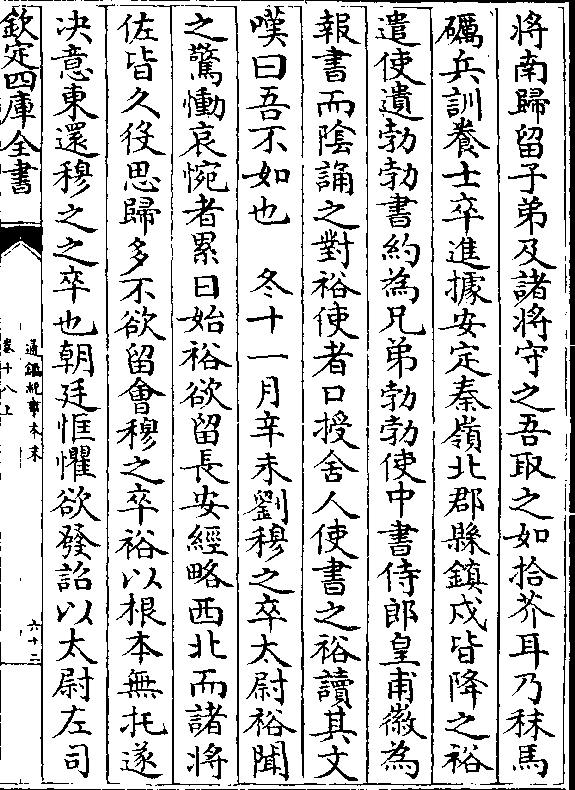 將南歸留子弟及諸將守之吾取之如拾芥耳乃秣馬
礪兵訓養士卒進據安定秦嶺北郡縣鎮戍皆降之裕
遣使遺勃勃書約為兄弟勃勃使中書侍郎皇甫徽為
報書而陰誦之對裕使者口授舍人使書之裕讀其文
嘆曰吾不如也　冬十一月辛未劉穆之卒太尉裕聞
之驚慟哀惋者累日始裕欲留長安經略西北而諸將
佐皆久役思歸多不欲留會穆之卒裕以根本無托遂
決意東還穆之之卒也朝廷恇懼欲發詔以太尉左司
欽定四庫全書
通鑑紀事本末
卷十八上
六十三